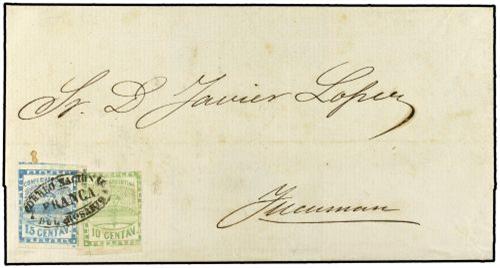 Sr. D. Javier Lopez
Tucuman
CONFEON ARGENTINA
CORREO NACIONAL
FRANCA
DEL ROSARIO
15 CENTAV
10 CENTAV